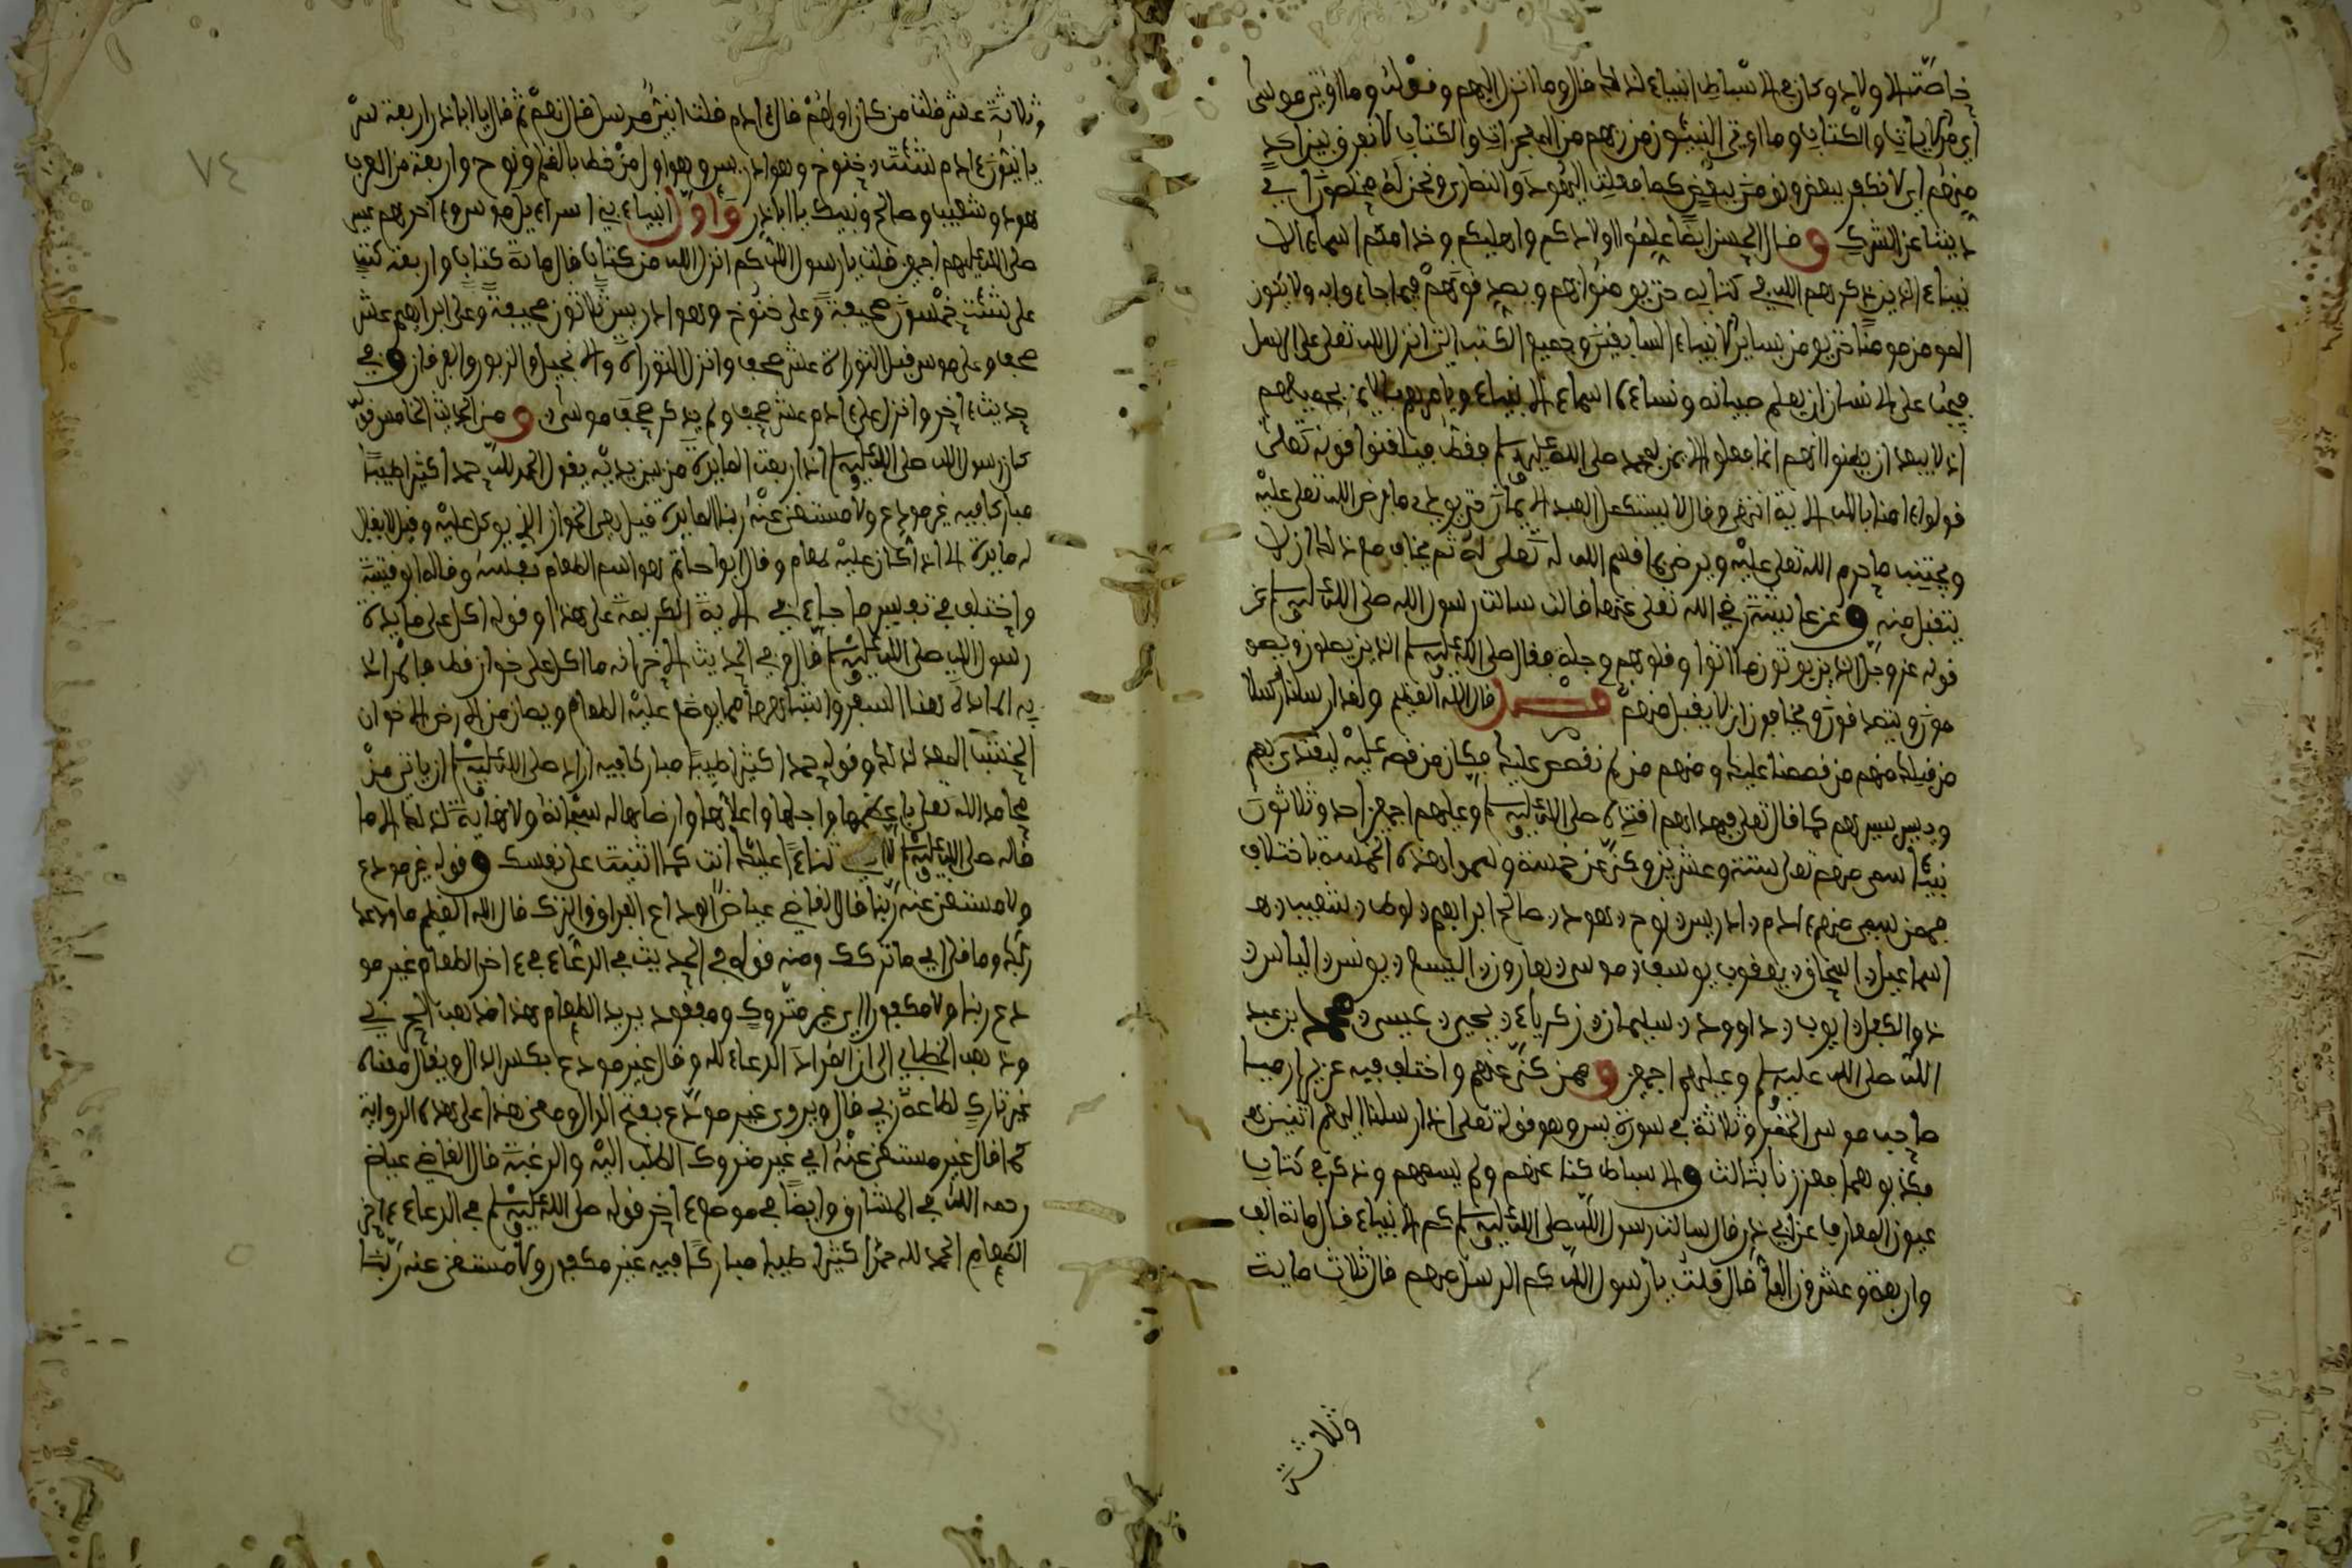 خاصة الاولاد وكان في الاسباط انبياء لذلك قال وما انزل اليهم وقوله وما اوتي موسى
اي من الايات والكتاب وما اوتي النبيئون من ربهم من المعجزات والكتاب لا نفرق بين احد
منهم اي لا نكفر ببعض ونومن ببعض كما فعلت اليهود والنصارى ونحن له مخلصون اي في
ديننا عن الشرك وقال الحسن ايضا علموا اولادكم واهليكم وخدامكم اسماء الا
نبياء الذين ذكرهم الله في كتابه حتى يومنوا بهم ويصدقوهم فيما جاءوا به ولا يكون
المومن مومنا حتى يومن بساير الانبياء السابقين وجميع الكتب التي انزل الله تعلى على الرسل
فيجب على الانسان ان يعلم صبيانه ونساءه اسماء الانبياء ويامرهم بالايمان بجميعهم
اذ لا يبعد ان يظنوا انهم انما كلفوا الايمان بمحمد صلى الله عليه وسلم فقط فيناقضوا قوله تعلى
قولوا ءامنا بالله الاية انتهى وقال لا يستكمل العبد الايمان حتى يودي ما فرض الله تعلى عليه
ويجتنب ما حرم الله تعلى عليه ويرضى بما قسم الله له تعلى له ثم يخاف مع ذلك ان لا
يتقبل منه وعن عايشة رضي الله تعلى عنها قالت سالت رسول الله صلى الله عليه وسلم عن
قوله عز وجل الذين يوتون ما اتوا وقلوبهم وجلة فقال صلى الله عليه وسلم الذين يصلون ويصو
مون ويتصدقون ويخافون ان لا يقبل منهم فصل قال الله العظيم ولقد ارسلنا رسلا
من قبلك منهم من قصصنا عليك ومنهم من لم نقصص عليك فكان من قصه عليه ليقتدي بهم
ويسير بسيرهم كما قال تعلى فبهداهم اقتده صلى الله عليه وسلم وعليهم اجمعين احد وثلاثون
نبيئا سمى منهم تعلى ستة وعشرين وكنى عن خمسة ولهم هذه الخمسة باختلاف
فممن سمى منهم ءادم ادريس نوح هود صالح ابراهيم لوط شعيب
اسماعيل اسحاق يعقوب يوسف موسى هارون اليسع يونس الياس
ذو الكفل ايوب داوود سليمان زكرياء يحيى عيسى محمد بن عبد
الله صلى الله عليه وسلم وعليهم اجمعين وممن كنى عنهم واختلف فيه عزير ارميا
صاحب موسى الخضر وثلاثة في سورة يس وهو قوله تعلى اذ ارسلنا اليهم اثنين
فكذبوهما فعززنا بثالث والاسباط كنا عنهم ولم يسمهم وذكر في كتاب
عيون المعارف عن ابي ذر قال سالت رسول الله صلى الله عليه وسلم كم الانبياء قال مائة الف
واربعة وعشرون الفا قال قلت يا رسول الله كم الرسل منهم قال ثلاث ماية
وثلاثة عشر
وثلاثة عشر قلت من كان اولهم قال ءادم قلت انبي مرسل قال نعم ثم قال يا ابا ذر اربعة سر
يانيون ءادم شيث خنوخ وهو ادريس وهو اول من خط بالقلم ونوح واربعة من العرب
هود وشعيب وصالح ونبيك يا ابا ذر واول انبياء بني اسراءيل موسى وءاخرهم عيسى
صلى الله عليهم اجمعين قلت يا رسول الله كم انزل الله من كتاب قال مائة كتاب واربعة كتب
على شيث خمسون صحيفة وعلى خنوخ وهو ادريس ثلاثون صحيفة وعلى ابراهيم عشر
صحف وعلى موسى قبل التوراة عشر صحف وانزل التوراة والانجيل والزبور والفرقان وفي
حديث ءاخر وانزل على ءادم عشر صحف ولم يذكر صحف موسى ومن الحديث الخامس قوله
كان رسول الله صلى الله عليه وسلم اذا رفعت المايدة من بين يديه يقول الحمد لله حمدا كثيرا طيبا
مباركا فيه غير مودع ولا مستغنى عنه ربنا المايدة قيل هي الخوان الذي يوكل عليه وقيل لا يقال
له مايدة الا اذا كان عليه طعام وقال ابو حاتم هو اسم الطعام نفسه وقاله ابو قتيبة
واختلف في تفسير ما جاء في الاية الكريمة على هذا وقوله اكل على مايدة
رسول الله صلى الله عليه وسلم قال وفي الحديث الاخر انه ما اكل على خوان قط فالمراد
به المايدة هنا السفر واشباهها مما يوضع عليه الطعام ويصان من الارض الا خوان
الخشب المعد لذلك وقوله حمدا كثيرا طيبا مباركا فيه اراد صلى الله عليه وسلم ان ياتي من
محامد الله تعلى باعظمها واجلها واعلاها وارضاها له سبحانه ولا نهاية لذلك الا ما
قاله صلى الله عليه وسلم لا احصي ثناء عليك انت كما اثنيت على نفسك وقوله غير مودع
ولا مستغنى عنه ربنا قال القاضي عياض الوداع الفراق والترك قال الله العظيم ما ودعك
ربك وما قلى اي ما تركك ومنه قوله في الحديث في الدعاء في ءاخر الطعام غير مو
دع ربنا ولا مكفور اي غير متروك ومفقود يريد الطعام هذا مذهب الحربي
وذهب الخطابي الى ان المراد الدعاء لله وقال غير مودع بكسر الدال ويقال معناه
غير تارك لطاعة ربي قال ويروى غير مودع بفتح الدال ومعنى هذا على هذه الرواية
كما قال غير مستغنى عنه اي غير متروك الطلب اليه والرغبة قال القاضي عياض
رحمه الله في المشارق وايضا في موضع ءاخر قوله صلى الله عليه وسلم في الدعاء ءاخر
الطعام الحمد لله حمدا كثيرا طيبا مباركا فيه غير مكفور ولا مستغنى عنه ربنا
٧٤